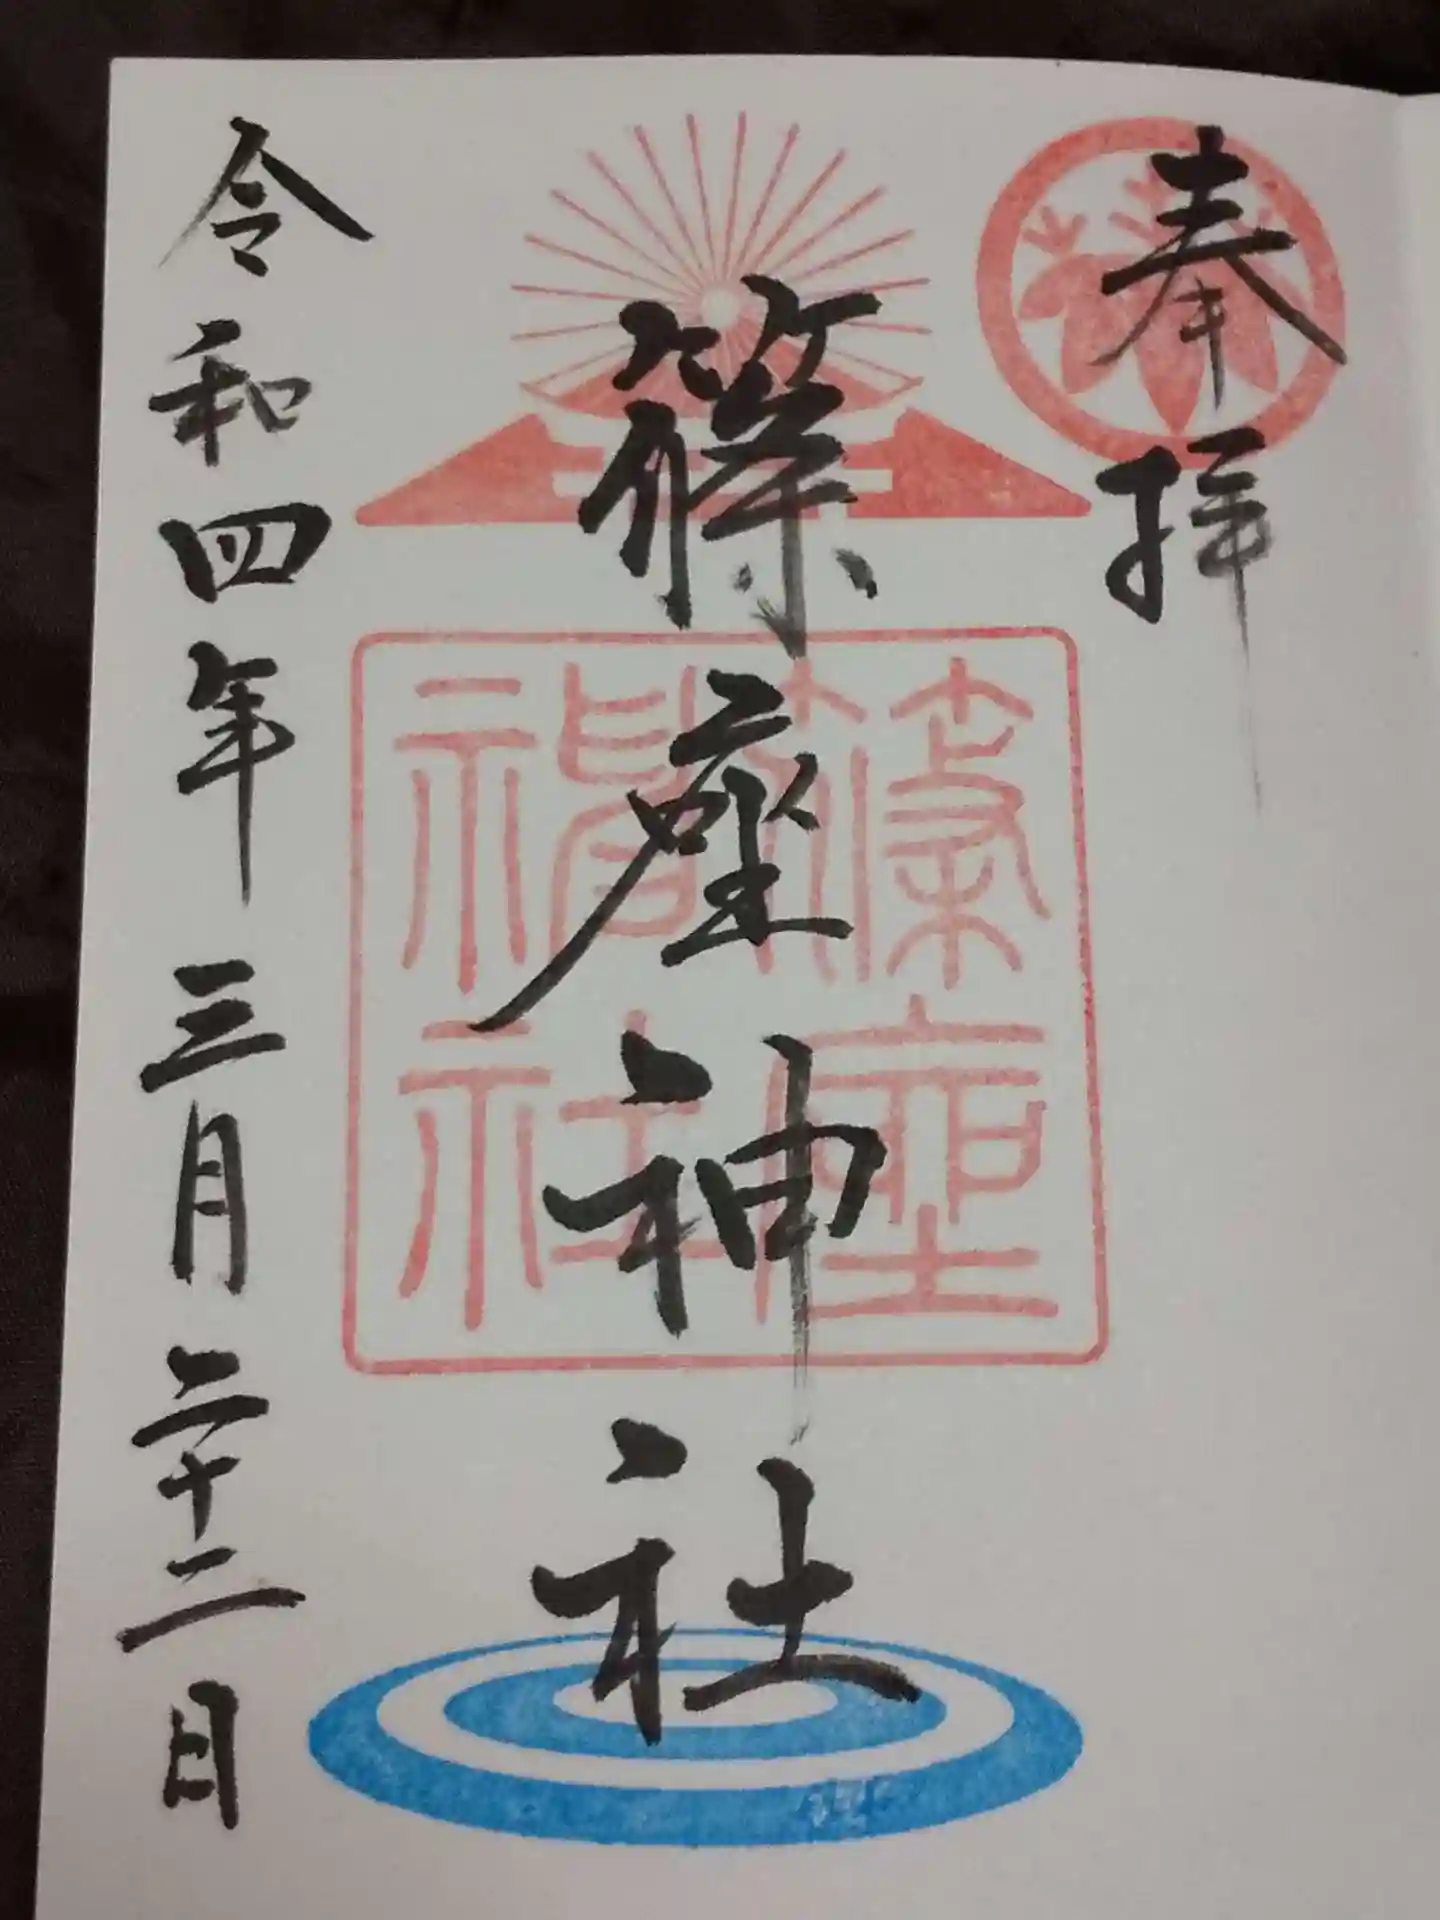 奉拝
篠座神社
篠座
神社
令和四年三月二十二日